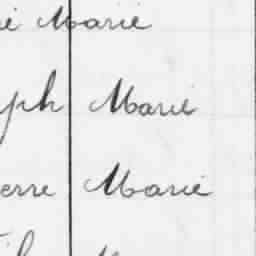 Marie
ph Marie
erre Marie